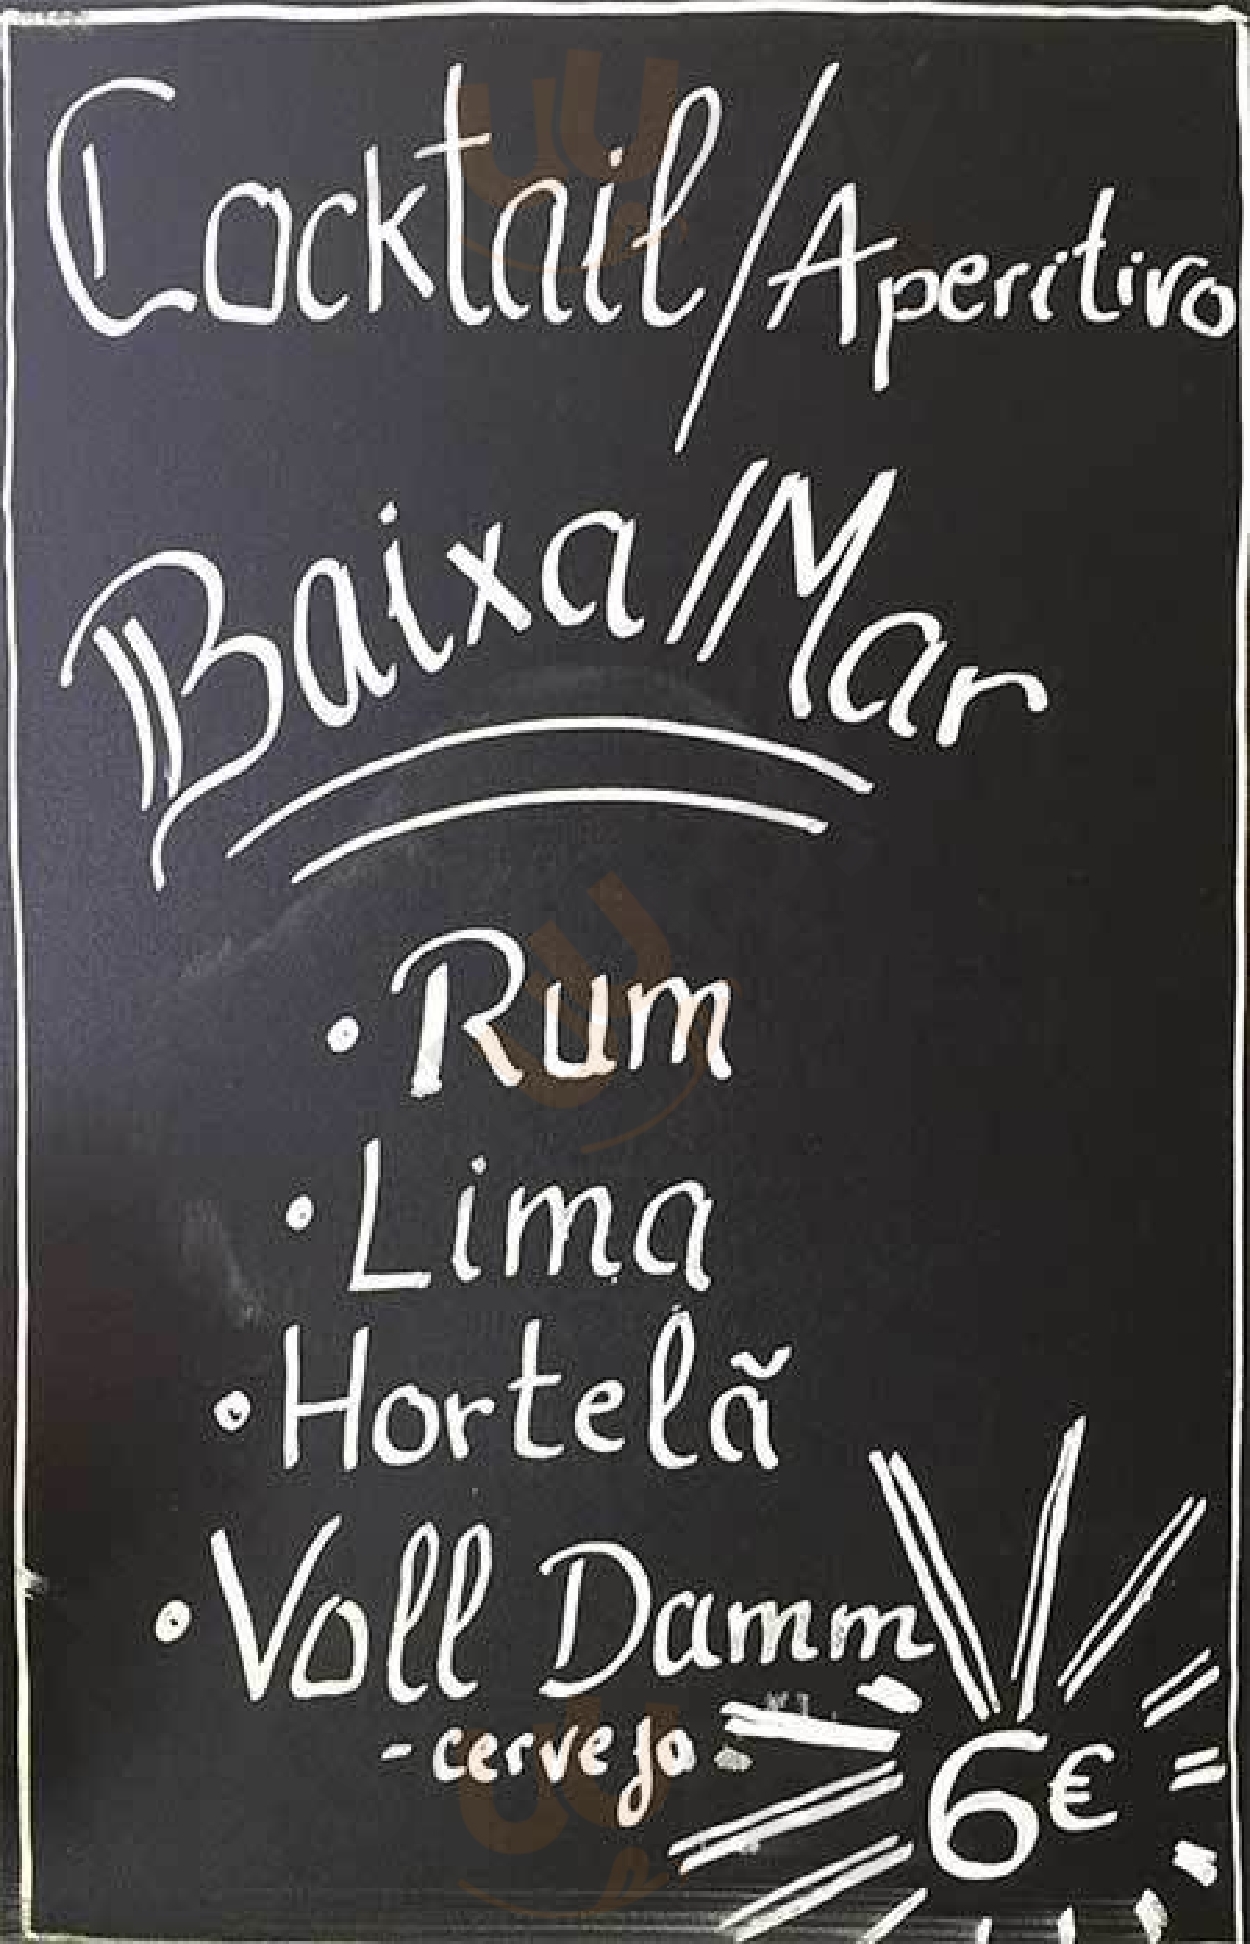 Cocktail/Aperitivo
Baixa Mar
• Rum
• Lima
• Hortelã
• Voll Damm
- cerveja -
6€